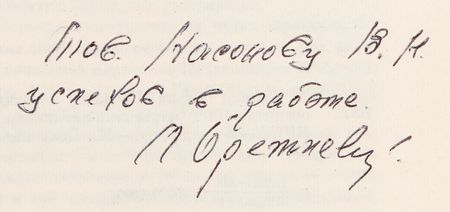 Тов. Насонову В. Н.
успехов в работе.
Л Брежнев